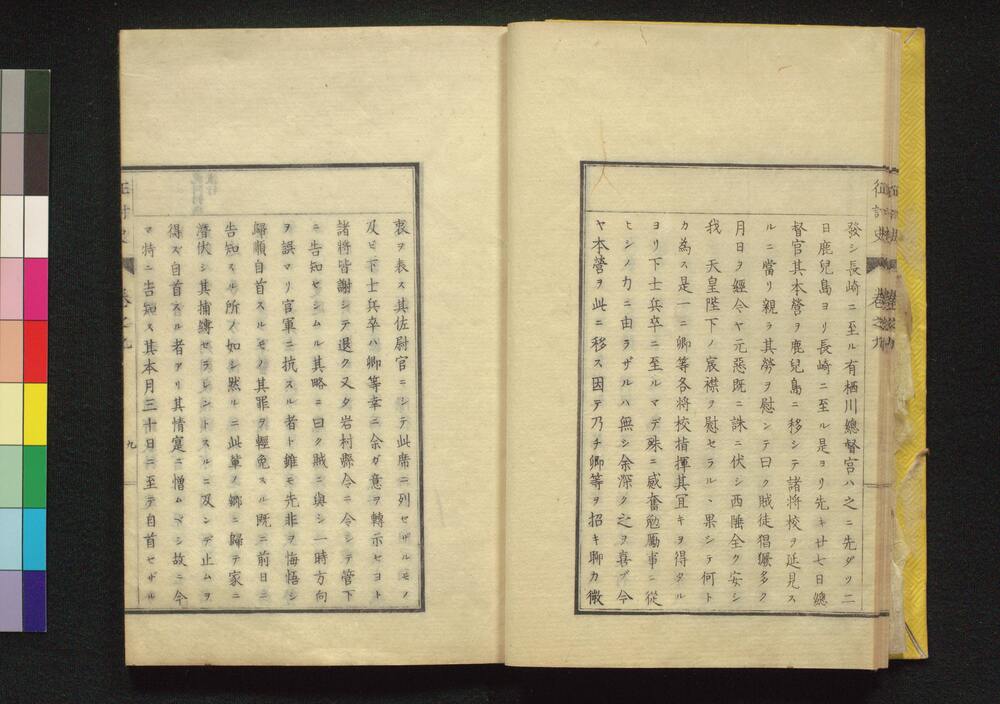 發シ長崎ニ至ル有栖川總督宮ハ之ニ先ダツ二
日鹿兒島ヨリ長崎ニ至ル是ヨリ先キ廿七日總
督官其本營ヲ鹿兒島ニ移シテ諸將校ヲ延見ス
ルニ當リ親ラ其勞ヲ慰シテ曰ク賊徒猖獗多ク
月日ヲ經今ヤ元惡既ニ誅ニ伏シ西陲全ク安シ
我 天皇陛下ノ宸襟ヲ慰セラル、果シテ何ト
カ為ス是一ニ卿等各將校指揮其宜キヲ得タル
ヨリ下士兵卒ニ至ルマデ殊ニ感奮勉勵事ニ從
ヒシノ力ニ由ラザルハ無シ余深ク之ヲ喜ブ今
ヤ本營ヲ此ニ移ス因テ乃チ卿等ヲ招キ聊カ微
衷ヲ表ス其佐尉官ニシテ此席ニ列セザルモノ
及ビ下士兵卒ハ卿等幸ニ余ガ意ヲ轉示セヨト
諸將皆謝シテ退ク又タ岩村縣令ニ令シテ管下
ニ告知セシムル其略ニ曰ク賊ニ與シ一時方向
ヲ誤マリ官軍ニ抗スル者ト雖モ先非ヲ悔悟シ
歸順自首スルモノ其罪ヲ輕免スル既ニ前日ニ
告知スル所ノ如シ然ルニ此輩ノ鄉ニ歸テ家ニ
潛伏シ其捕縛セラレントスルニ及ンデ止ムヲ
得ズ自首スル者アリ其情寔ニ憎ムベシ故ニ今
マ特ニ告知ス其本月三十日ニ至テ自首セザル
征討史
卷之九
九